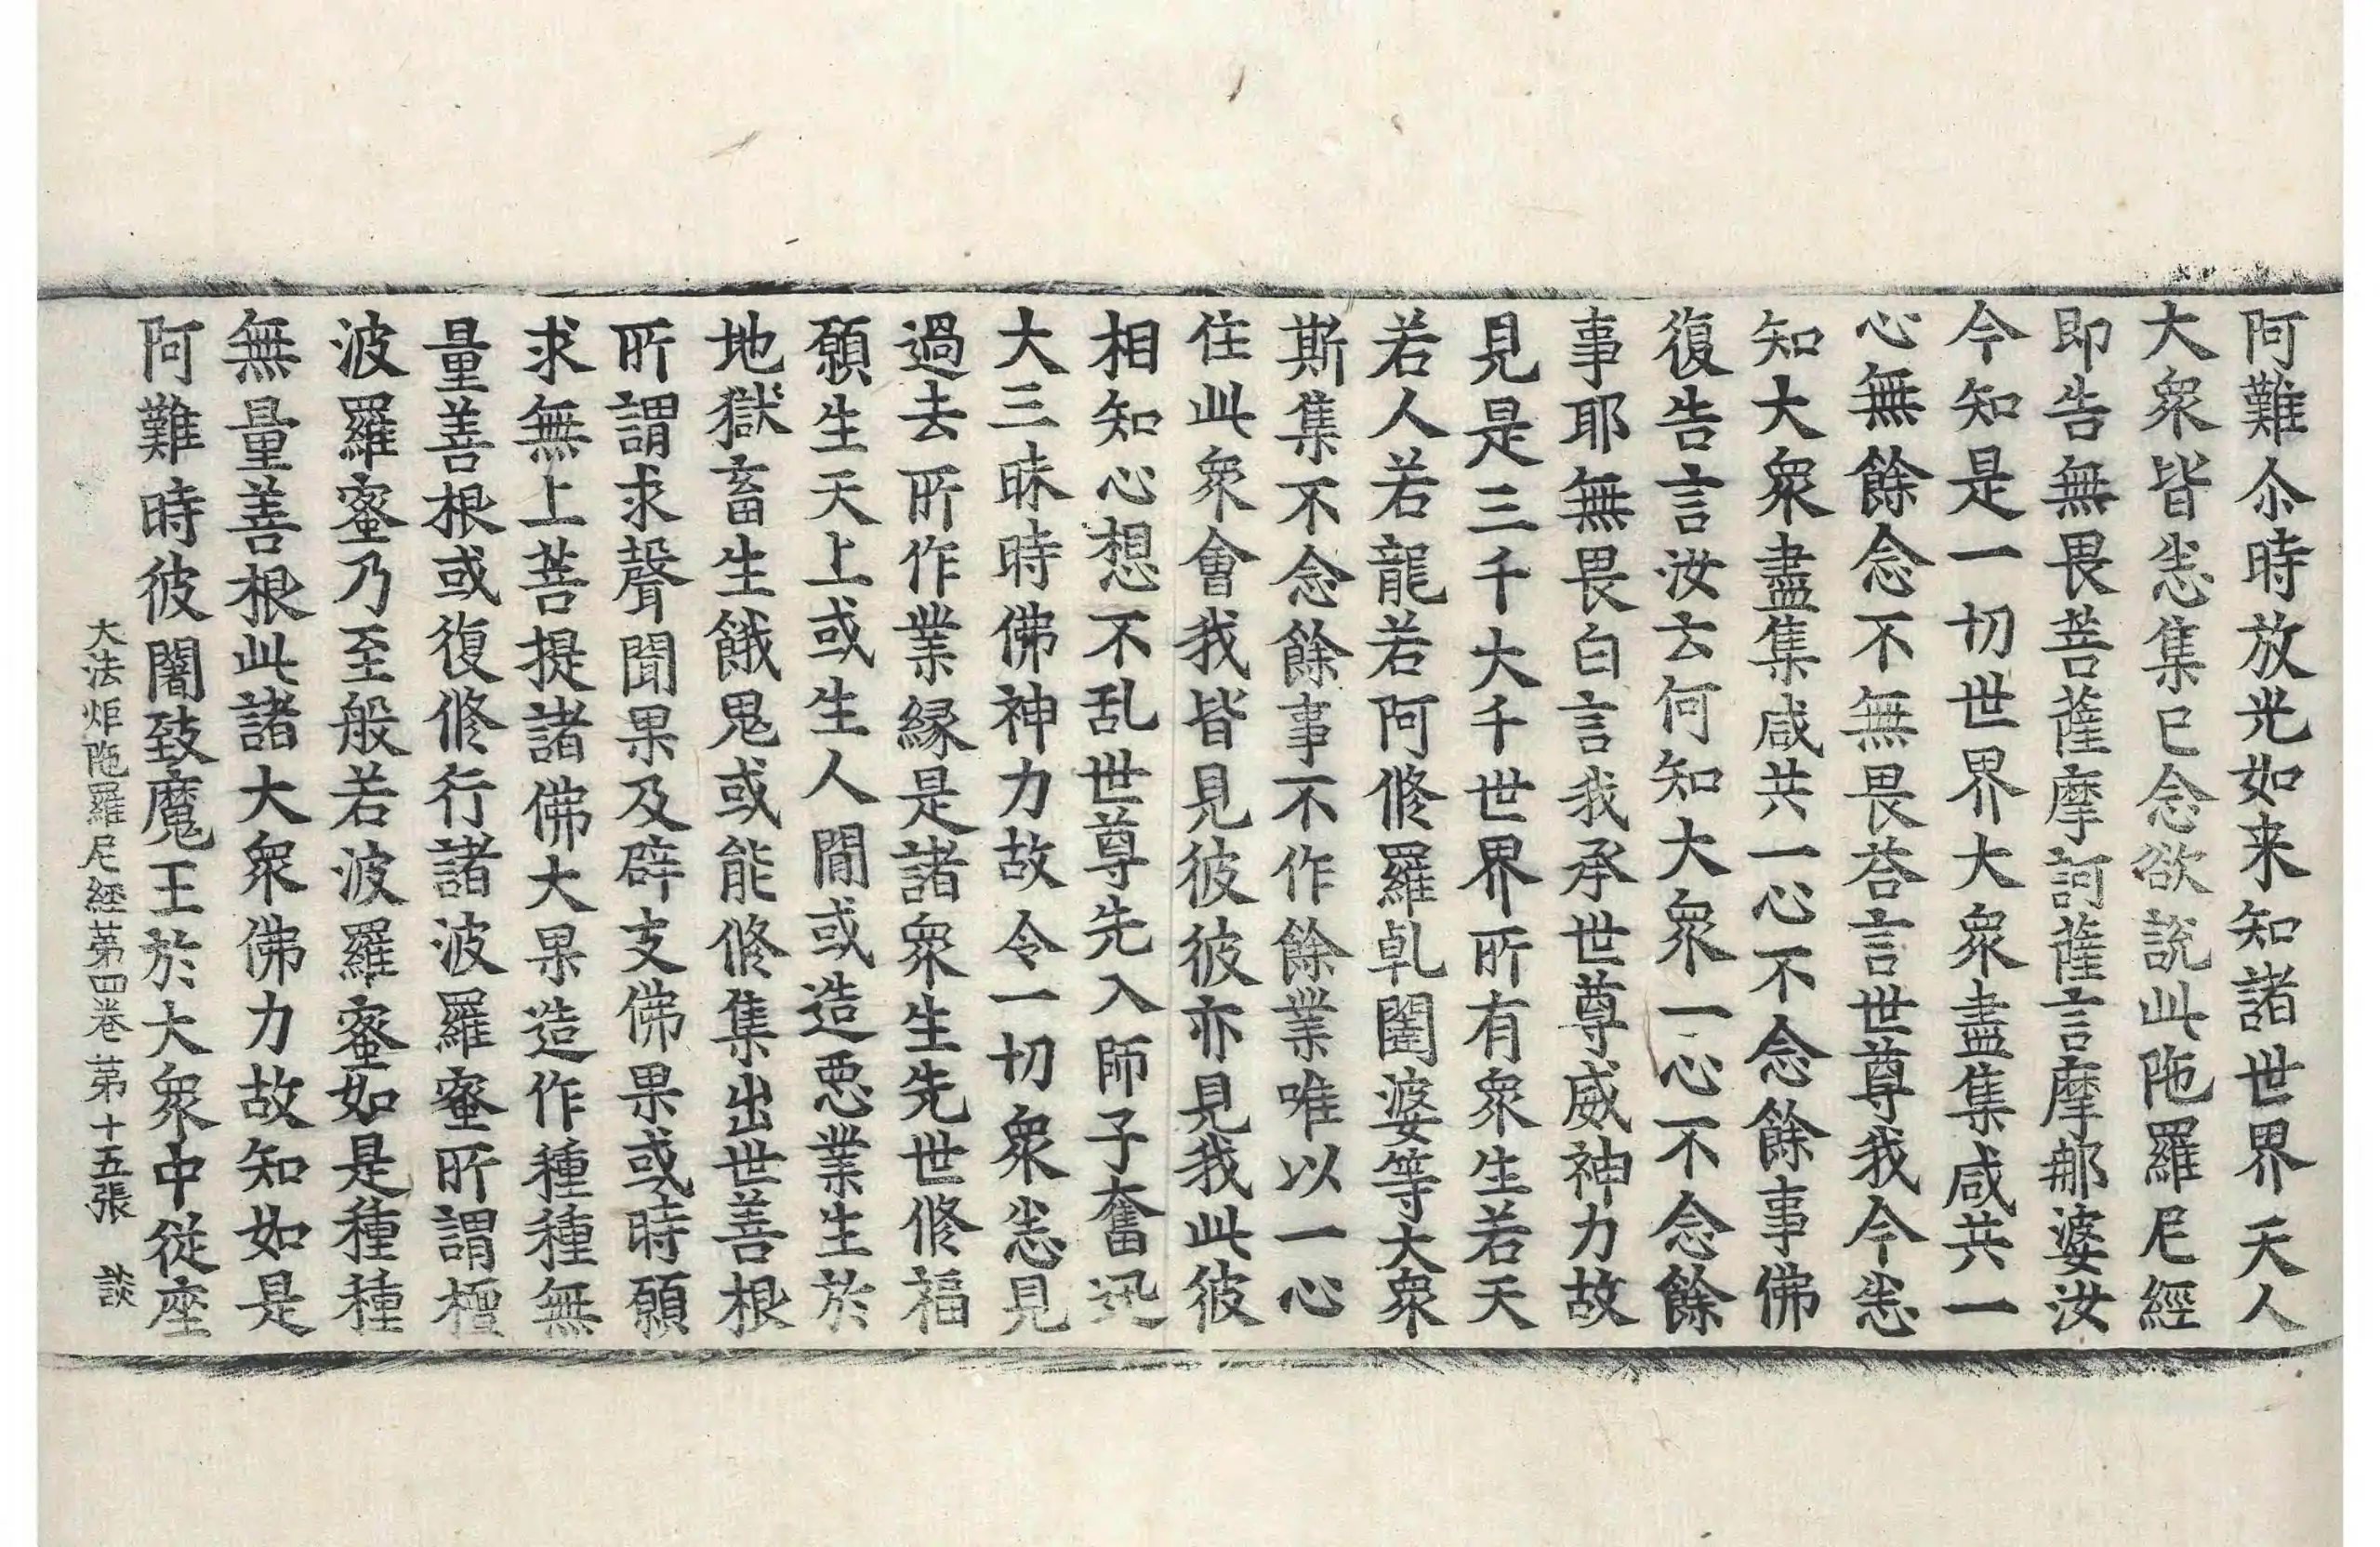 阿難尒時放光如来知諸世界天人
大衆皆悉集已念欲說此陁羅尼經
即告無畏菩薩摩訶薩言摩郍婆汝
今知是一切世界大衆盡集咸共一
心無餘念不無畏荅言世尊我今悉
知大衆盡集咸共一心不念餘事佛
復告言汝云何知大衆一心不念餘
事耶無畏白言我承世尊威神力故
見是三千大千世界所有衆生若天
若人若龍若阿脩羅乹闥婆等大衆
斯集不念餘事不作餘業唯以一心
住此衆會我皆見彼彼亦見我此彼
相知心想不乱世尊先入師子奮迅
大三昧時佛神力故令一切衆悉見
過去所作業縁是諸衆生先世脩福
願生天上或生人閒或造惡業生於
地獄畜生餓鬼或能脩集出世善根
所謂求聲聞果及辟支佛果或時願
求無上菩提諸佛大果造作種種無
量善根或復脩行諸波羅蜜所謂檀
波羅蜜乃至般若波羅蜜如是種種
無量善根此諸大衆佛力故知如是
阿難時彼闇致魔王於大衆中從座
大法炬陁羅尼經第四卷 第十五張 談